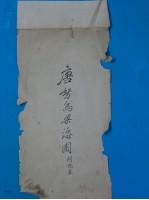 唐努烏梁海圖